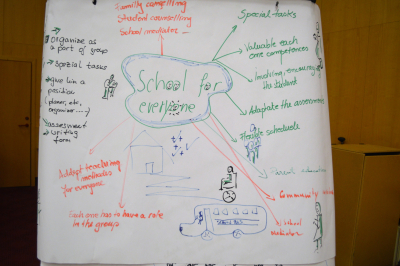 Family counselling
Student counselling
School mediator
Special tasks
organize as
a part of group
Special tasks
give him a
position
(planer, etc,
organiser.....)
assessment
writing
form
School for
everyone
Valuable each
one competences
Involving, encouraging
the student
Adaptate the assessment
Flexible schedule
Adapt teaching
methodes
for everyone
Each one has to have a role
in the groups
Community
school
mediator
SCHOOL BUS